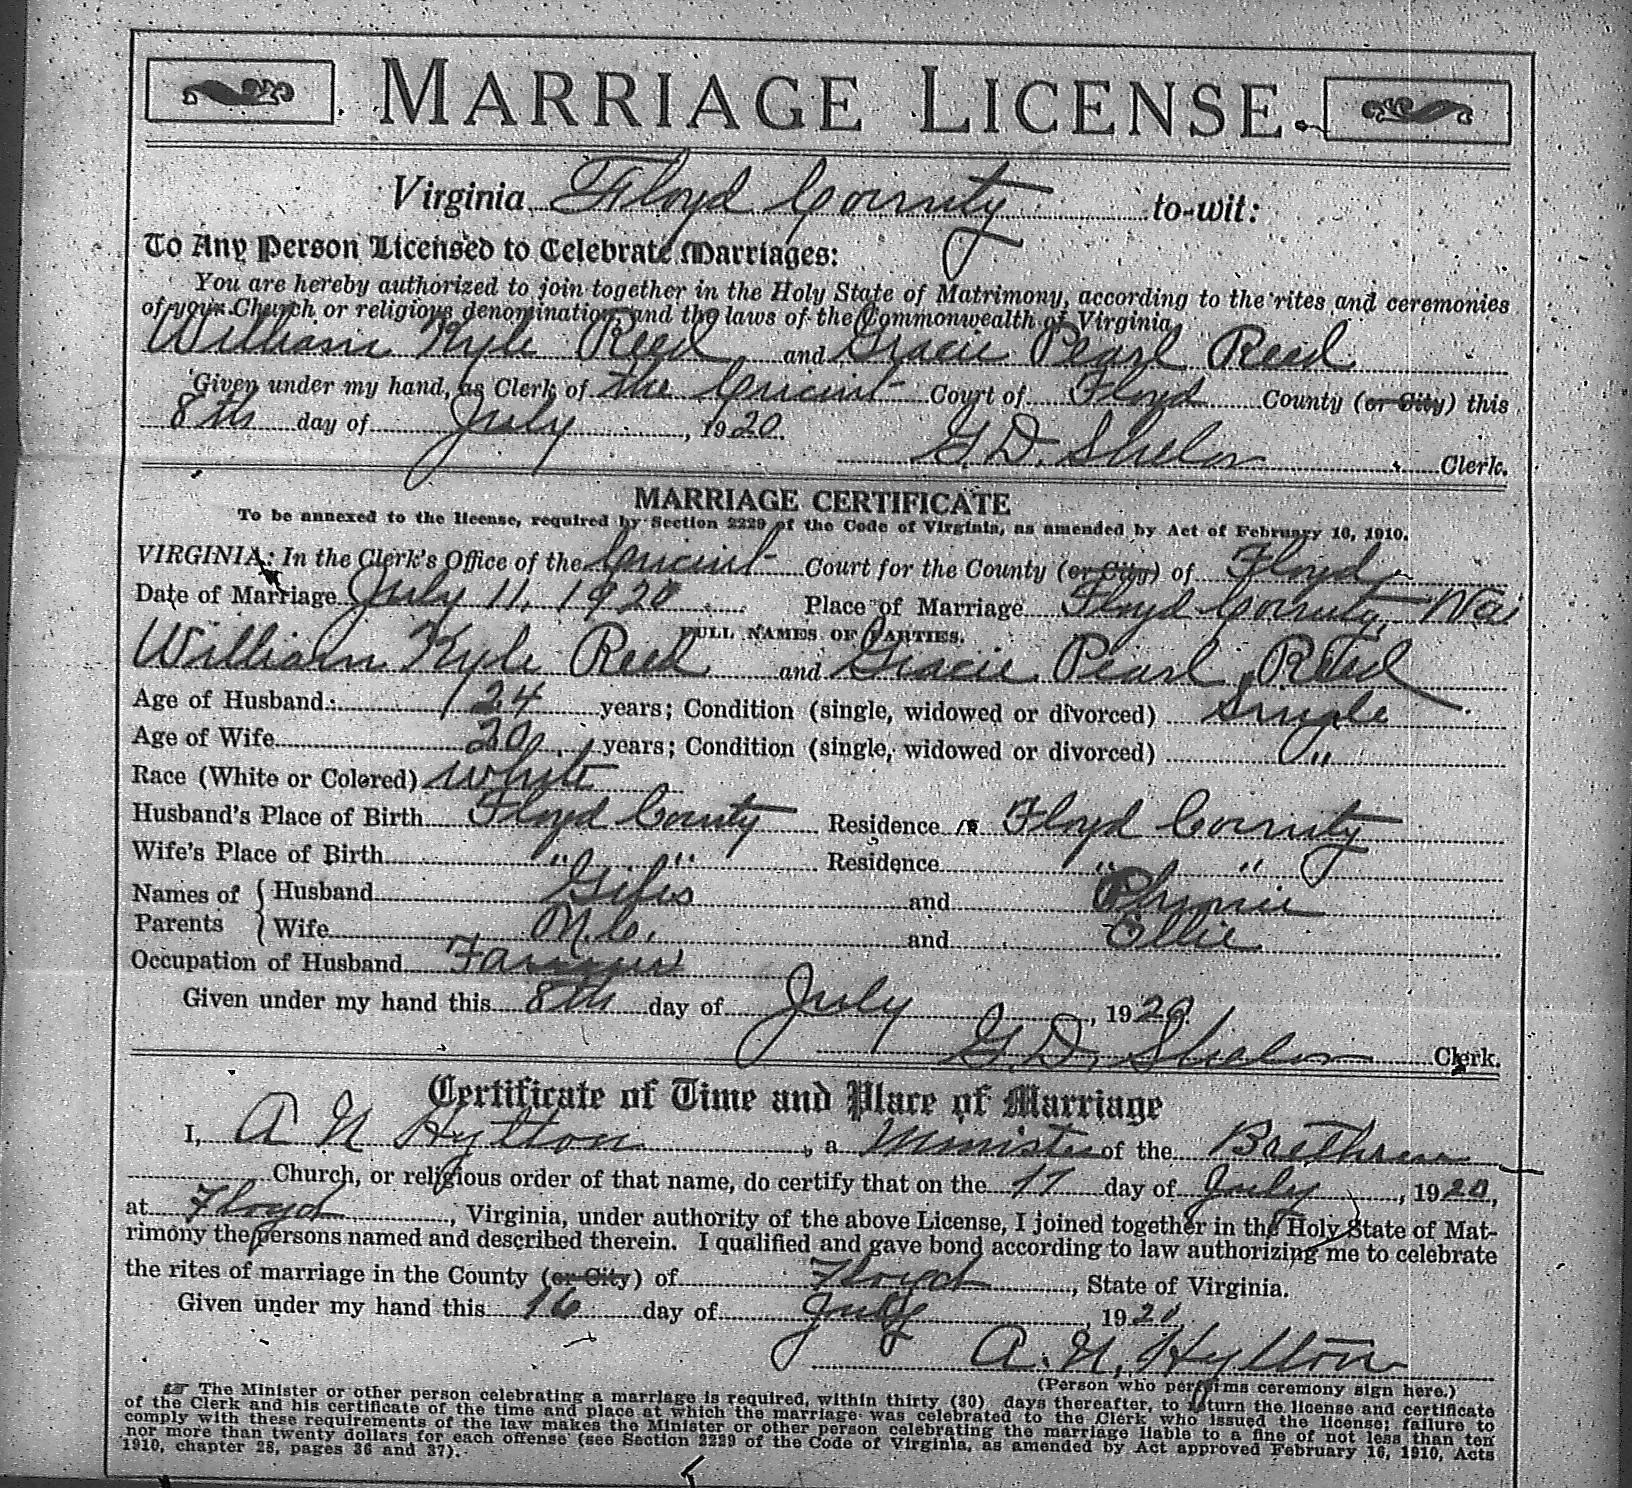 MARRIAGE LICENSE.
Virginia Floyd County to-wit:
To Any Person Licensed to Celebrate Marriages:
You are hereby authorized to join together in the Holy State of Matrimony, according to the rites and ceremonies
of your Church or religious denomination, and the laws of the Commonwealth of Virginia,
William Kyle Reed and Gracie Pearl Reed
Given under my hand, as Clerk of the Circuit Court of Floyd County (or City) this
8th day of July, 1920.
G. D. Shelor Clerk.
MARRIAGE CERTIFICATE
To be annexed to the license, required by Section 2229 of the Code of Virginia, as amended by Act of February 16, 1910.
VIRGINIA: In the Clerk's Office of the Circuit Court for the County (or City) of Floyd
Date of Marriage July 11, 1920 Place of Marriage Floyd County, Va
FULL NAMES OF PARTIES.
William Kyle Reed and Gracie Pearl Reed
Age of Husband 24 years; Condition (single, widowed or divorced) Single
Age of Wife 20 years; Condition (single, widowed or divorced) "
Race (White or Colored) White
Husband's Place of Birth Floyd County Residence Floyd County
Wife's Place of Birth " " Residence " "
Names of Parents { Husband and
Wife M. C. and Ellie
Occupation of Husband Farmer
Given under my hand this 8th day of July, 1920.
G. D. Shelor Clerk.
Certificate of Time and Place of Marriage
I, A N Hylton, a Minister of the Brethren
Church, or religious order of that name, do certify that on the day of July, 1920,
at Floyd, Virginia, under authority of the above License, I joined together in the Holy State of Mat-
rimony the persons named and described therein. I qualified and gave bond according to law authorizing me to celebrate
the rites of marriage in the County (or City) of Floyd, State of Virginia.
Given under my hand this 16 day of July, 1920.
A. N. Hylton
(Person who performs ceremony sign here.)
☞ The Minister or other person celebrating a marriage is required, within thirty (30) days thereafter, to return the license and certificate
of the Clerk and his certificate of the time and place at which the marriage was celebrated to the Clerk who issued the license; failure to
comply with these requirements of the law makes the Minister or other person celebrating the marriage liable to a fine of not less than ten
nor more than twenty dollars for each offense (see Section 2229 of the Code of Virginia, as amended by Act approved February 16, 1910, Acts
1910, chapter 28, pages 36 and 37).